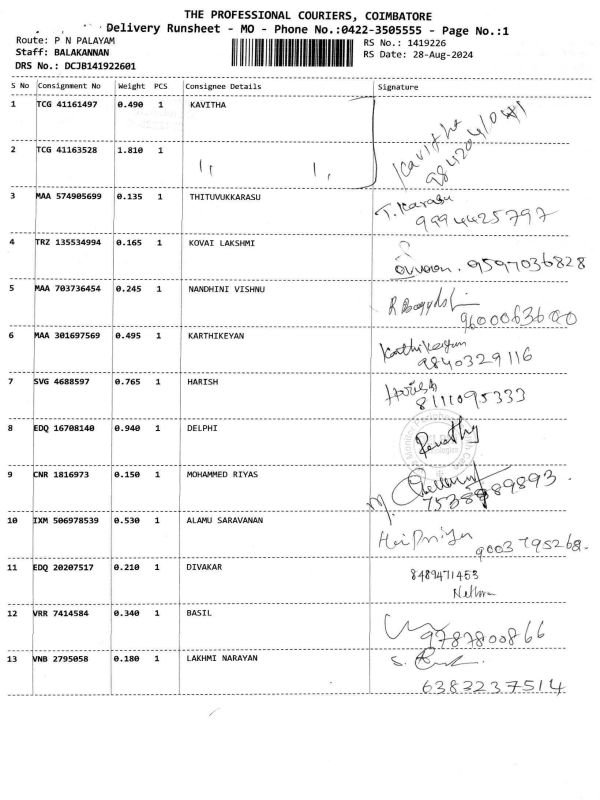 THE PROFESSIONAL COURIERS, COIMBATORE
Delivery Runsheet - MO - Phone No.:0422-3505555 - Page No.:1
Route: P N PALAYAM
RS No.: 1419226
Staff: BALAKANNAN
RS Date: 28-Aug-2024
DRS No.: DCJB141922601
S No Consignment No Weight PCS Consignee Details Signature
1 TCG 41161497 0.490 1 KAVITHA
2 TCG 41163528 1.810 1 Kavitha
3 MAA 574905699 0.135 1 THITUVUKKARASU T. Karasu
9994425797
4 TRZ 135534994 0.165 1 KOVAI LAKSHMI
9597036828
5 MAA 703736454 0.245 1 NANDHINI VISHNU
9600063600
6 MAA 301697569 0.495 1 KARTHIKEYAN Karthikeyan
9840329116
7 SVG 4688597 0.765 1 HARISH Harish
8111095333
8 EDQ 16708140 0.940 1 DELPHI
9 CNR 1816973 0.150 1 MOHAMMED RIYAS
10 IXM 506978539 0.530 1 ALAMU SARAVANAN
9003795268.
11 EDQ 20207517 0.210 1 DIVAKAR 8489471453
12 VRR 7414584 0.340 1 BASIL
9787800866
13 VNB 2795058 0.180 1 LAKHMI NARAYAN
6383237514